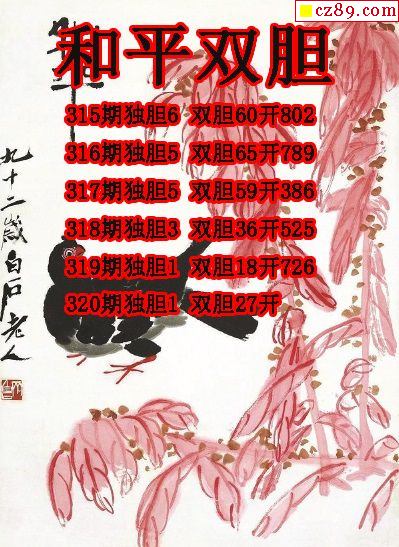 cz89.com
和平双胆
315期独胆6 双胆60开802
316期独胆5 双胆65开789
317期独胆5 双胆59开386
318期独胆3 双胆36开525
319期独胆1 双胆18开726
320期独胆1 双胆27开
九十二歲白石老人